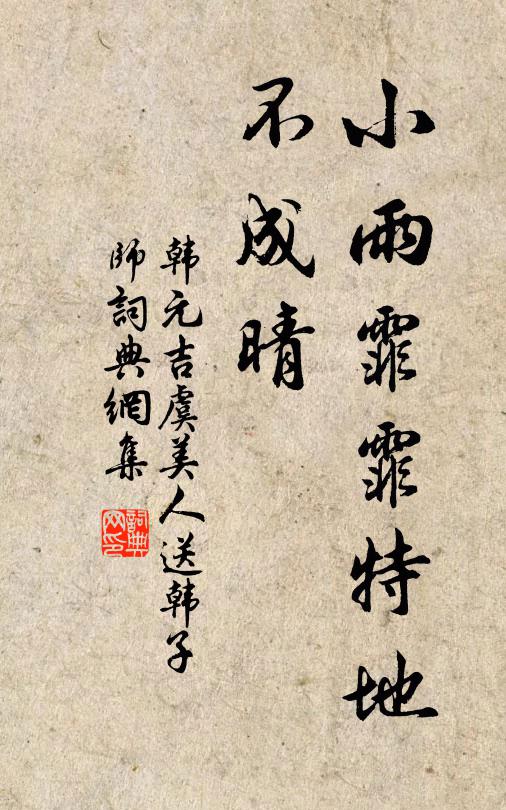 小雨霏霏特地
不成晴
韩元吉虞美人送韩子
师词典網集
詞典
网印